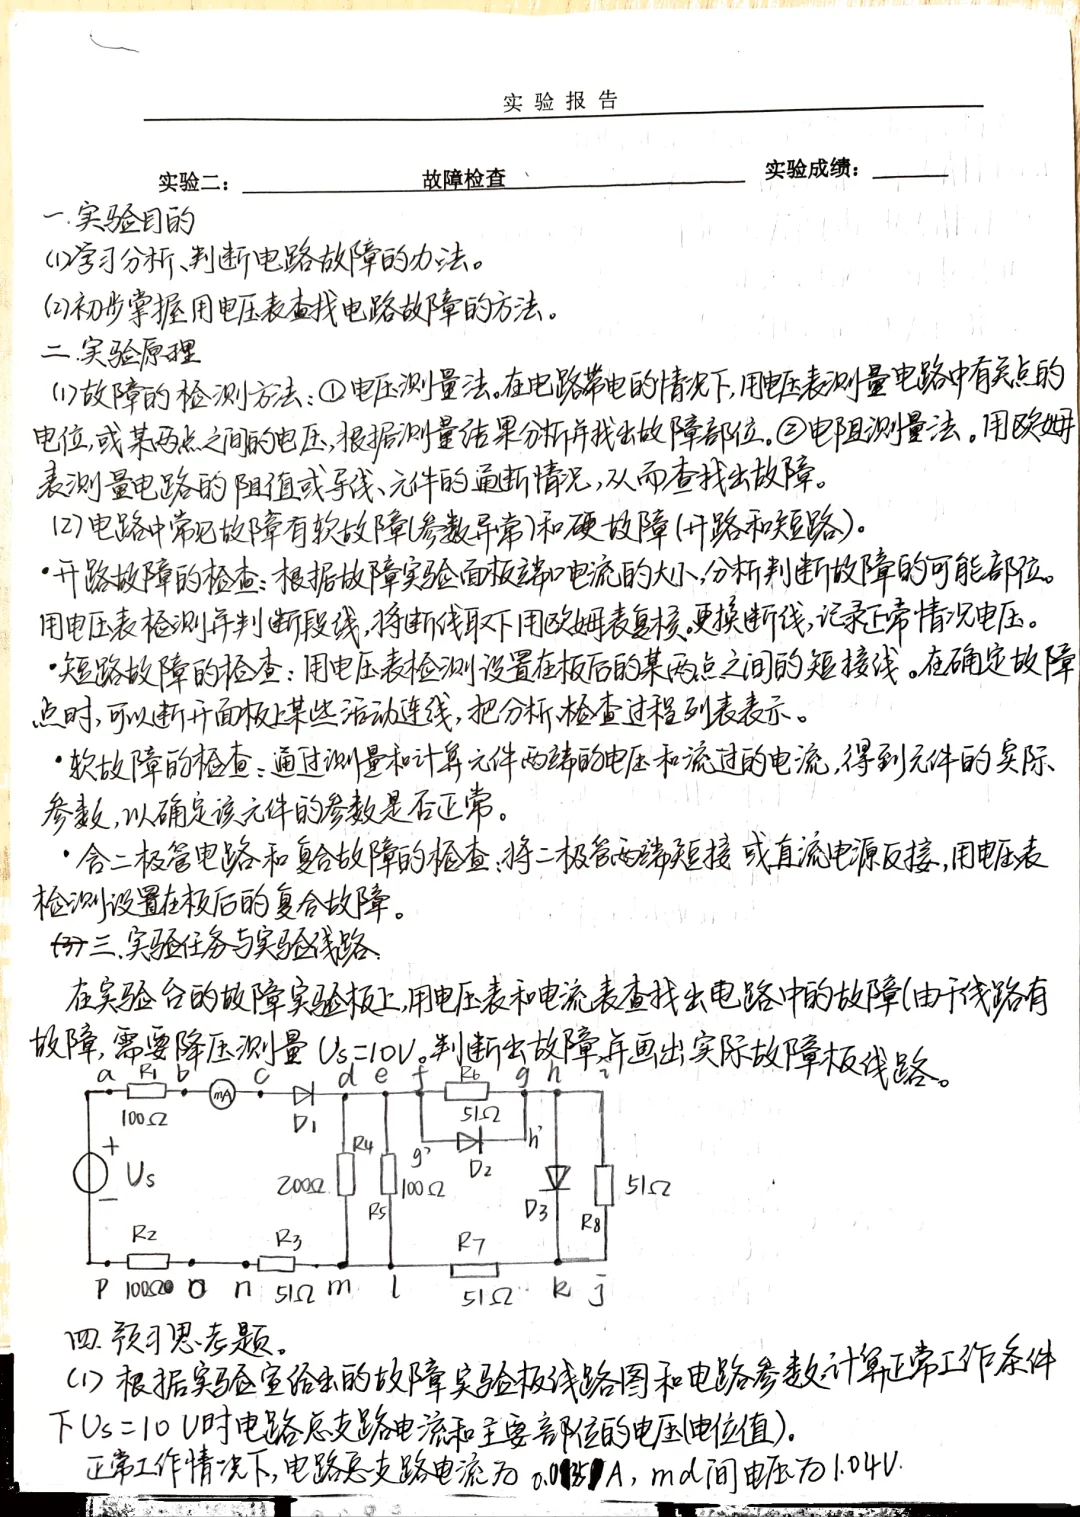 实验报告
实验二： 故障检查 实验成绩：
一.实验目的
(1)学习分析、判断电路故障的办法。
(2)初步掌握用电压表查找电路故障的方法。
二.实验原理
(1)故障的检测方法：①电压测量法。在电路带电的情况下,用电压表测量电路中有关点的
电位,或某两点之间的电压,根据测量结果分析并找出故障部位。②电阻测量法。用欧姆
表测量电路的阻值或导线、元件的通断情况,从而查找出故障。
(2)电路中常见故障有软故障(参数异常)和硬故障(开路和短路)。
·开路故障的检查：根据故障实验面板端口电流的大小,分析判断故障的可能部位。
用电压表检测并判断段线,将断线取下用欧姆表复核。更换断线,记录正常情况电压。
·短路故障的检查：用电压表检测设置在板后的某两点之间的短接线。在确定故障
点时,可以断开面板上某些活动连线,把分析、检查过程列表表示。
·软故障的检查：通过测量和计算元件两端的电压和流过的电流,得到元件的实际
参数,以确定该元件的参数是否正常。
·含二极管电路和复合故障的检查：将二极管两端短接或直流电源反接,用电压表
检测设置在板后的复合故障。
(3)三.实验任务与实验线路.
在实验台的故障实验板上,用电压表和电流表查找出电路中的故障(由于线路有
故障,需要降压测量Us=10V。判断出故障并画出实际故障板线路。
a R1 b c d e f R6 g h i
mA
100Ω D1 51Ω
R4 g' D2 h'
+ Us − 200Ω 100Ω 51Ω
R5 D3 R8
R2 R3 R7
p 100Ω o n 51Ω m l 51Ω k j
四.预习思考题。
(1)根据实验室给出的故障实验板线路图和电路参数计算正常工作条件
下Us=10V时电路总支路电流和主要部位的电压(电位值)。
正常工作情况下,电路总支路电流为 A, md间电压为1.04V.